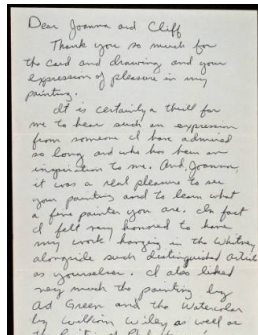 Dear Joanna and Cliff
Thank you so much for
the card and drawing and your
expression of pleasure in my
painting.
It is certainly a thrill for
me to hear such an expression
from someone I have admired
so long and who has been an
inspiration to me. And, Joanna,
it was a real pleasure to see
your painting and to learn what
a fine painter you are. In fact
I felt very honored to have
my work hanging in the Whitney
alongside such distinguished artists
as yourselves. I also liked
very much the painting by
Ad Green and the Watercolor
by William Wiley as well as